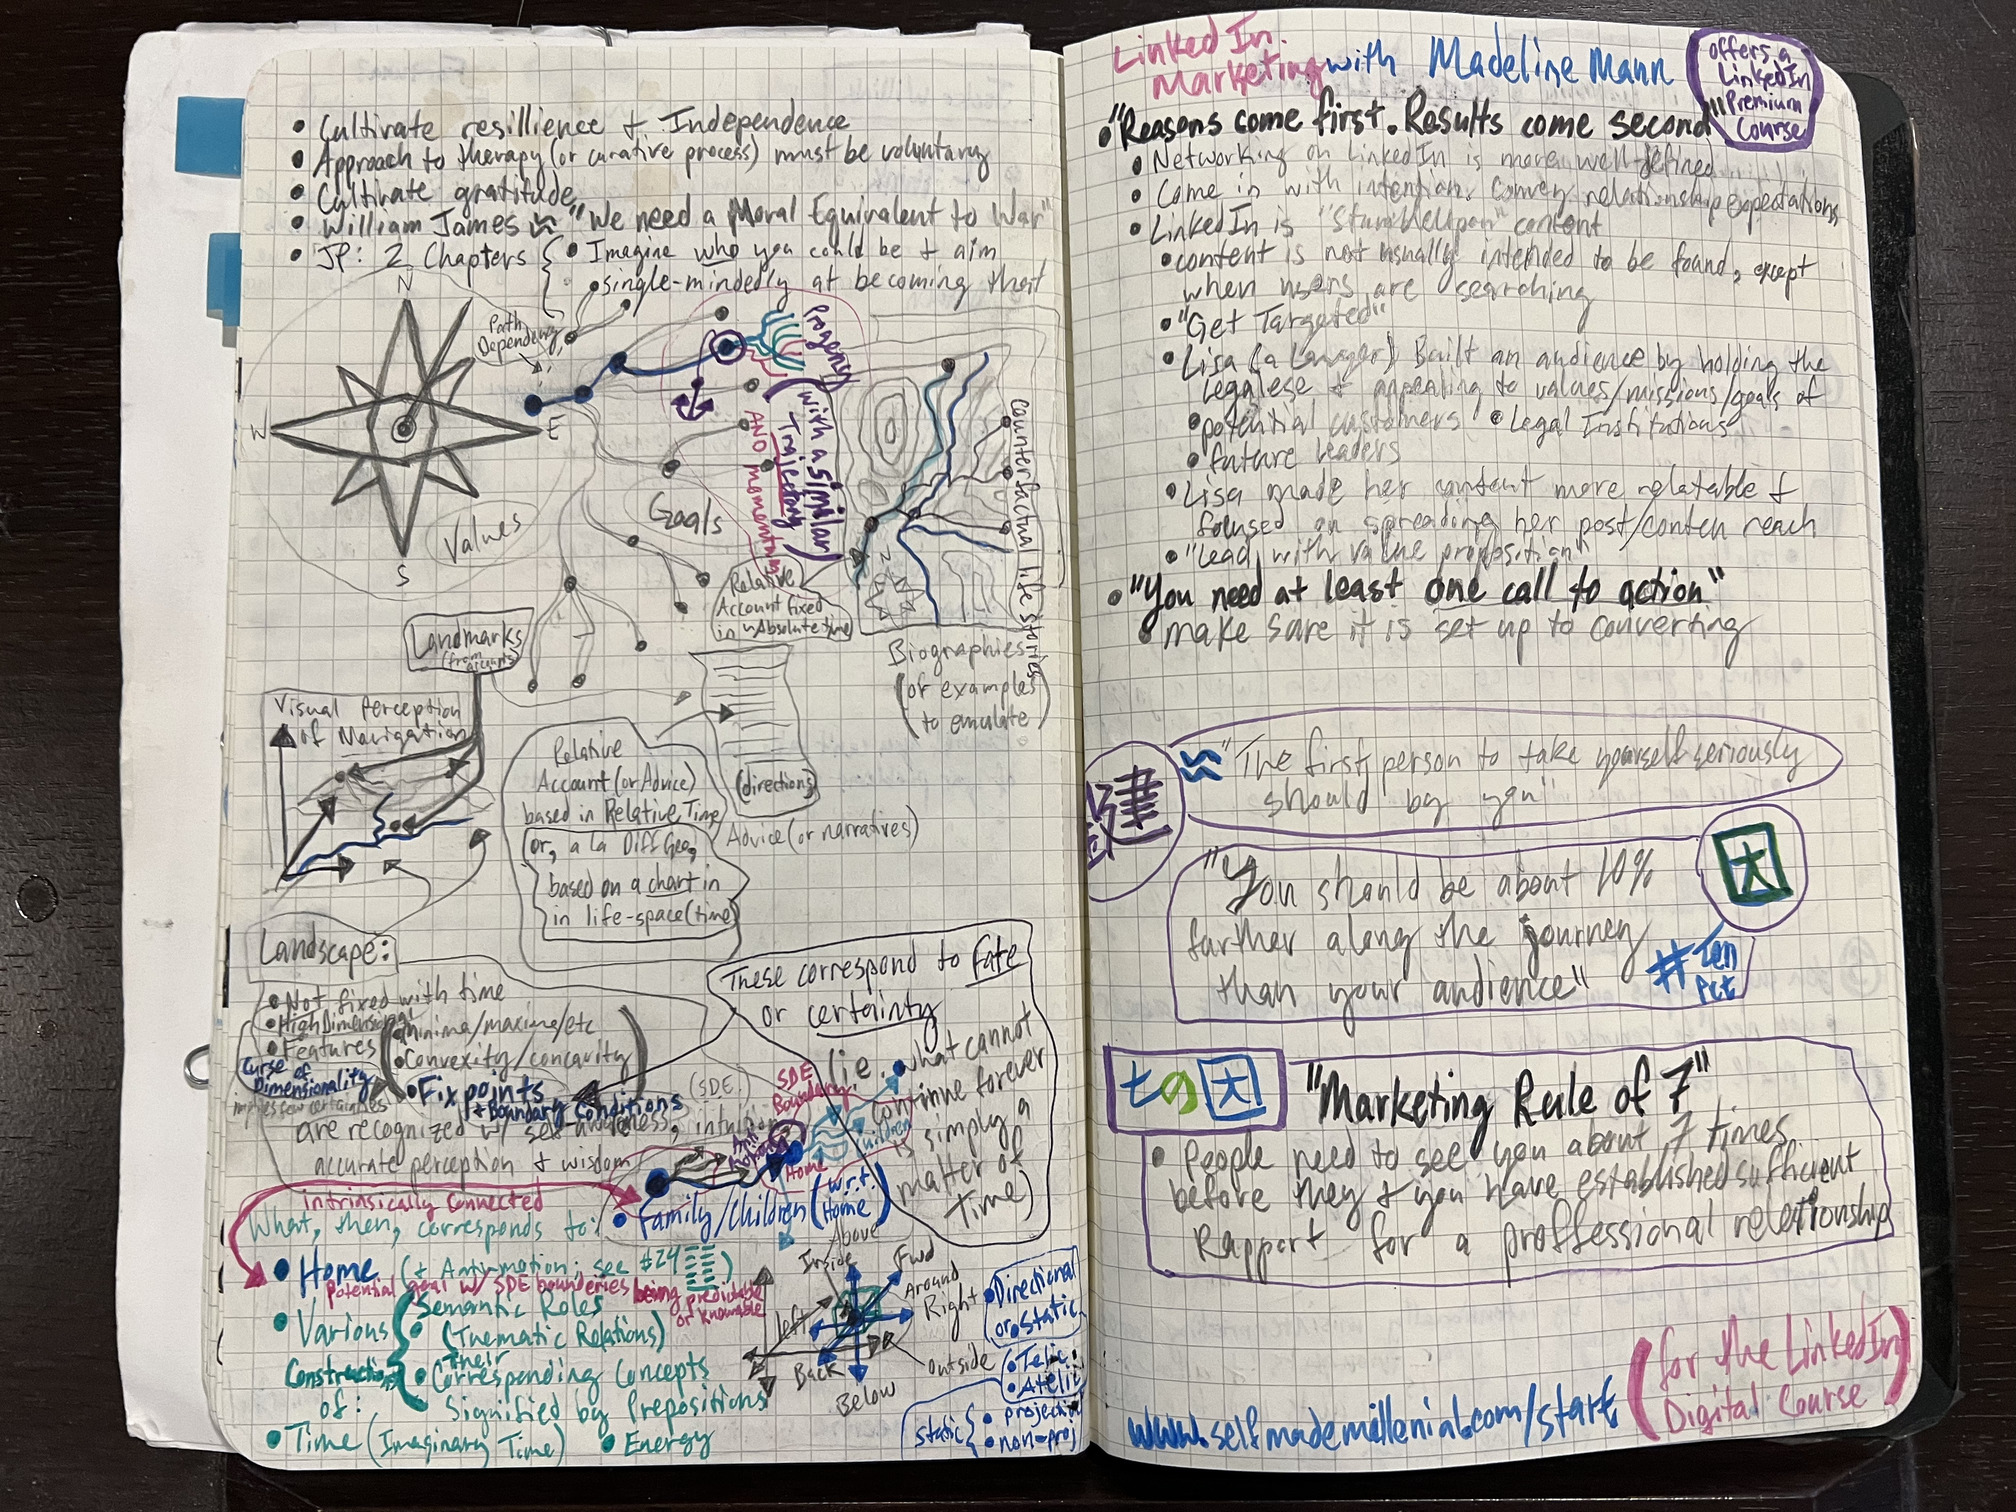 • Cultivate resillience + Independence
• Approach to therapy (or curative process) must be voluntary
• Cultivate gratitude
• William James ≈ "We need a Moral Equivalent to War"
• JP: 2 Chapters { • Imagine who you could be + aim
• single-mindedly at becoming that
N
W
E
S
Path
Dependency
Values
Goals
Progeny
(with a similar
Trajectory)
AND momentum
counterfactual life stories
Relative
Account fixed
in "Absolute" time
Biographies
(or examples
to emulate)
Landmarks
(from accounts)
Visual Perception
of Navigation
Relative
Account (or Advice)
based in Relative Time
or, a la Diff Geo,
based on a chart in
in life-space(time)
(directions)
Advice (or narratives)
Landscape:
• Not fixed with time
• High Dimensional
• Features
• minima/maxima/etc
• Convexity/concavity
• Fix points
+ Boundary Conditions
Curse of
Dimensionality
implies few certainties
are recognized w/ self awareness, intuition
accurate perception + wisdom
These correspond to fate
or certainty
(ie. what cannot
continue forever
is simply a
matter of
Time)
(SDE
SDE
Boundary
Anti
Motion
Home
Children
intrinsically connected
What, then, corresponds to:
• Family/Children (w.r.t. Home)
• Home (+ Antimotion; see #24 )
Potential goal w/ SDE bounderies being predictable
or knowable
• Various
Constructions
of:
• Semantic Roles
(Thematic Relations)
• Their
Corresponding Concepts
Signified by Prepositions
• Time (Imaginary Time) • Energy
Above
Inside
Fwd
Around
Left
Right
Back
outside
Below
• Directional
or • Static
• Telic
• Atelic
static { • projection
• non-proj
LinkedIn
Marketing with Madeline Mann
offers a
LinkedIn
Premium
Course
• "Reasons come first. Results come second"
• Networking on LinkedIn is more well-defined
• Come in with intention. Convey relationship expectations
• LinkedIn is "StumbleUpon" content
• content is not usually intended to be found, except
when users are searching
• "Get Targeted"
• Lisa (a Lawyer) Built an audience by holding the
legalese + appealing to values/missions/goals of
• potential customers • Legal Institutions
• future leaders
• Lisa made her content more relatable +
focused on spreading her post/conten reach
• "Lead with value proposition"
• "You need at least one call to action"
• make sure it is set up to converting
≈ "The first person to take yourself seriously
should by you"
"You should be about 10%
further along the journey
than your audience"
大
# Ten
Pct
七の大
"Marketing Rule of 7"
• People need to see you about 7 times
before they + you have established sufficient
Rapport for a proffessional relationship
www.selfmademillenial.com/start
(for the LinkedIn
Digital Course)